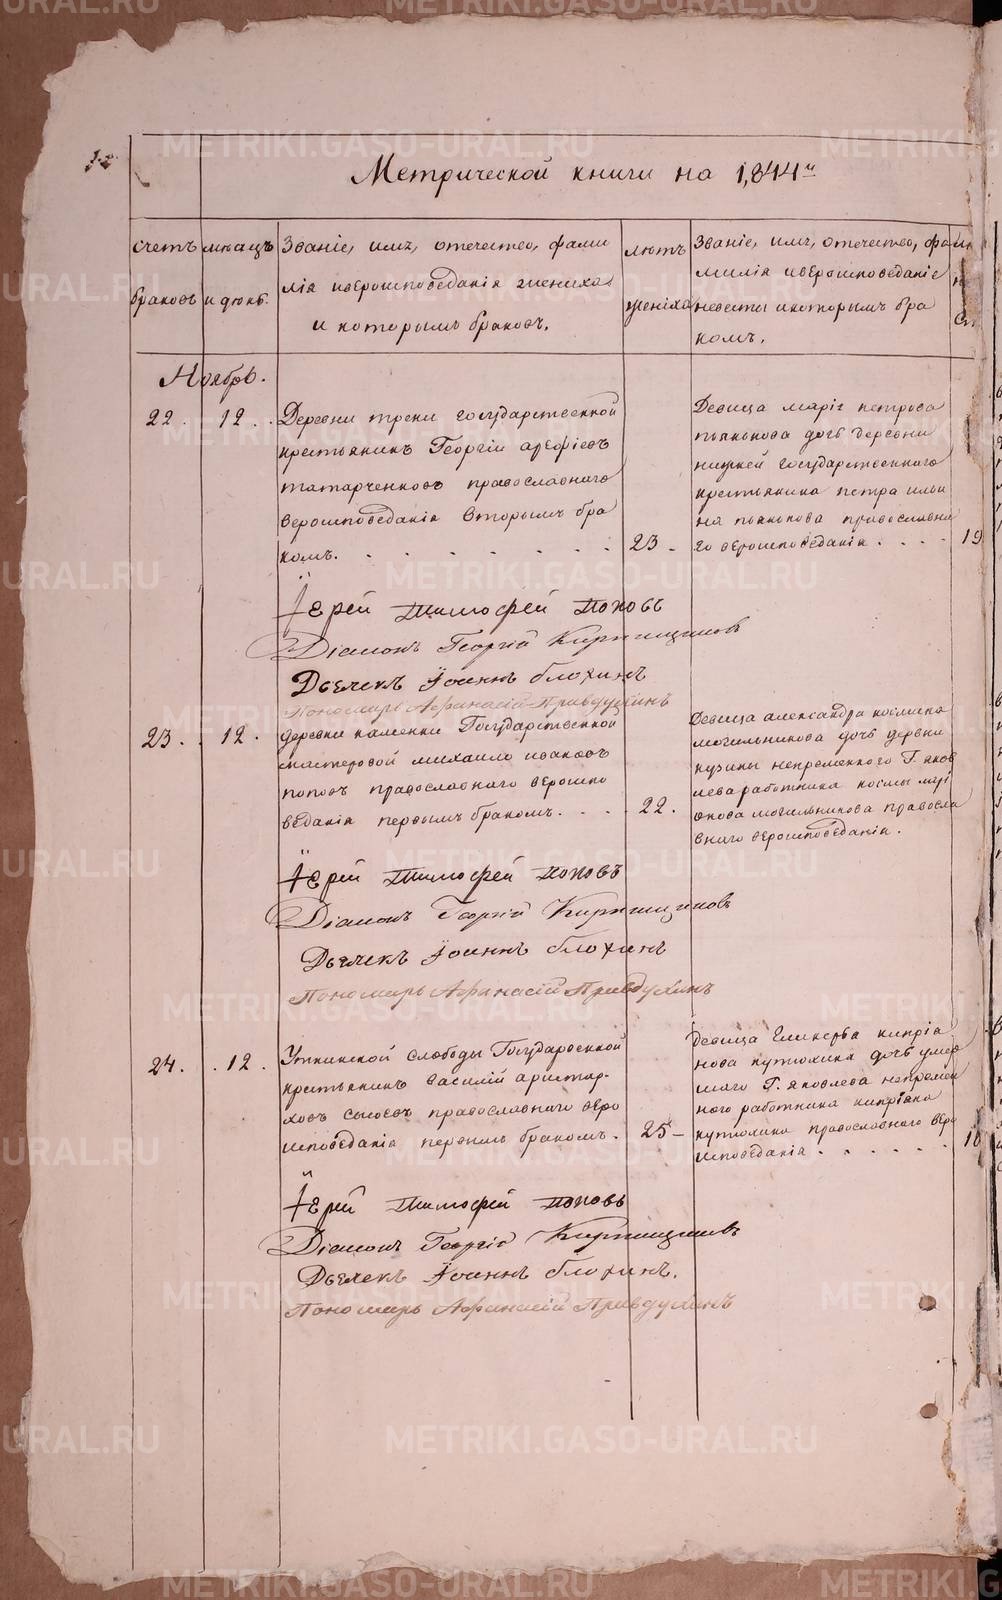 Метрической книги на 1,844й
счетъ
браковъ
мѣсацъ
и дѣнь.
Званіе, имя, отечество, фами
лія ивѣроисповѣданія жениха
и которымъ бракомъ.
лѣтъ
жениха
Званіе, имя, отечество, фа
милія ивѣроисповѣданіе
невесты икоторымъ бра
комъ.
Ноябрь.
22. 12.
Деревни треки государственной
крестьянинъ Георгій арефіевъ
татарченковъ православнаго
вѣроисповѣданія вторымъ бра
комъ.
23.
Девица марія петрова
пьянкова дочь деревни
нижней государственнаго
крестьянина петра ильи
на пьянкова православна
го вѣроисповѣданія
19
Іерей Тимофей Поповъ
Діаконъ Георгій Кирпищиковъ
Дьячекъ Іоаннъ Блохинъ
Пономарь Афанасій Правдухинъ
23. 12.
деревни каменки Государственной
мастеровой михаило ивановъ
поповъ православнаго вѣроиспо
вѣданія первымъ бракомъ.
22.
Девица александра космина
могильникова дочь деревни
кузины непременного Г. яков
лева работника космы мар
кова могильникова правосла
внаго вѣроисповѣданія.
Іерей Тимофей Поповъ
Діаконъ Георгій Кирпищиковъ
Дьячекъ Іоаннъ Блохинъ
Пономарь Афанасій Правдухинъ
24. 12.
Уткинской слободы Государсвенной
крестьянинъ василій аристар-
ховъ сысоевъ православнаго вѣро
исповѣданія первымъ бракомъ.
25
девица Гликерья кипріа
нова кутюхина дочь умер
шаго Г. яковлева непремен
ного работника кипріана
кутюхина православнаго вѣро
исповѣданія
18
Іерей Тимофей Поповъ
Діаконъ Георгій Кирпищиковъ
Дьячекъ Іоаннъ Блохинъ.
Пономарь Афанасій Правдухинъ
METRIKI.GASO-URAL.RU